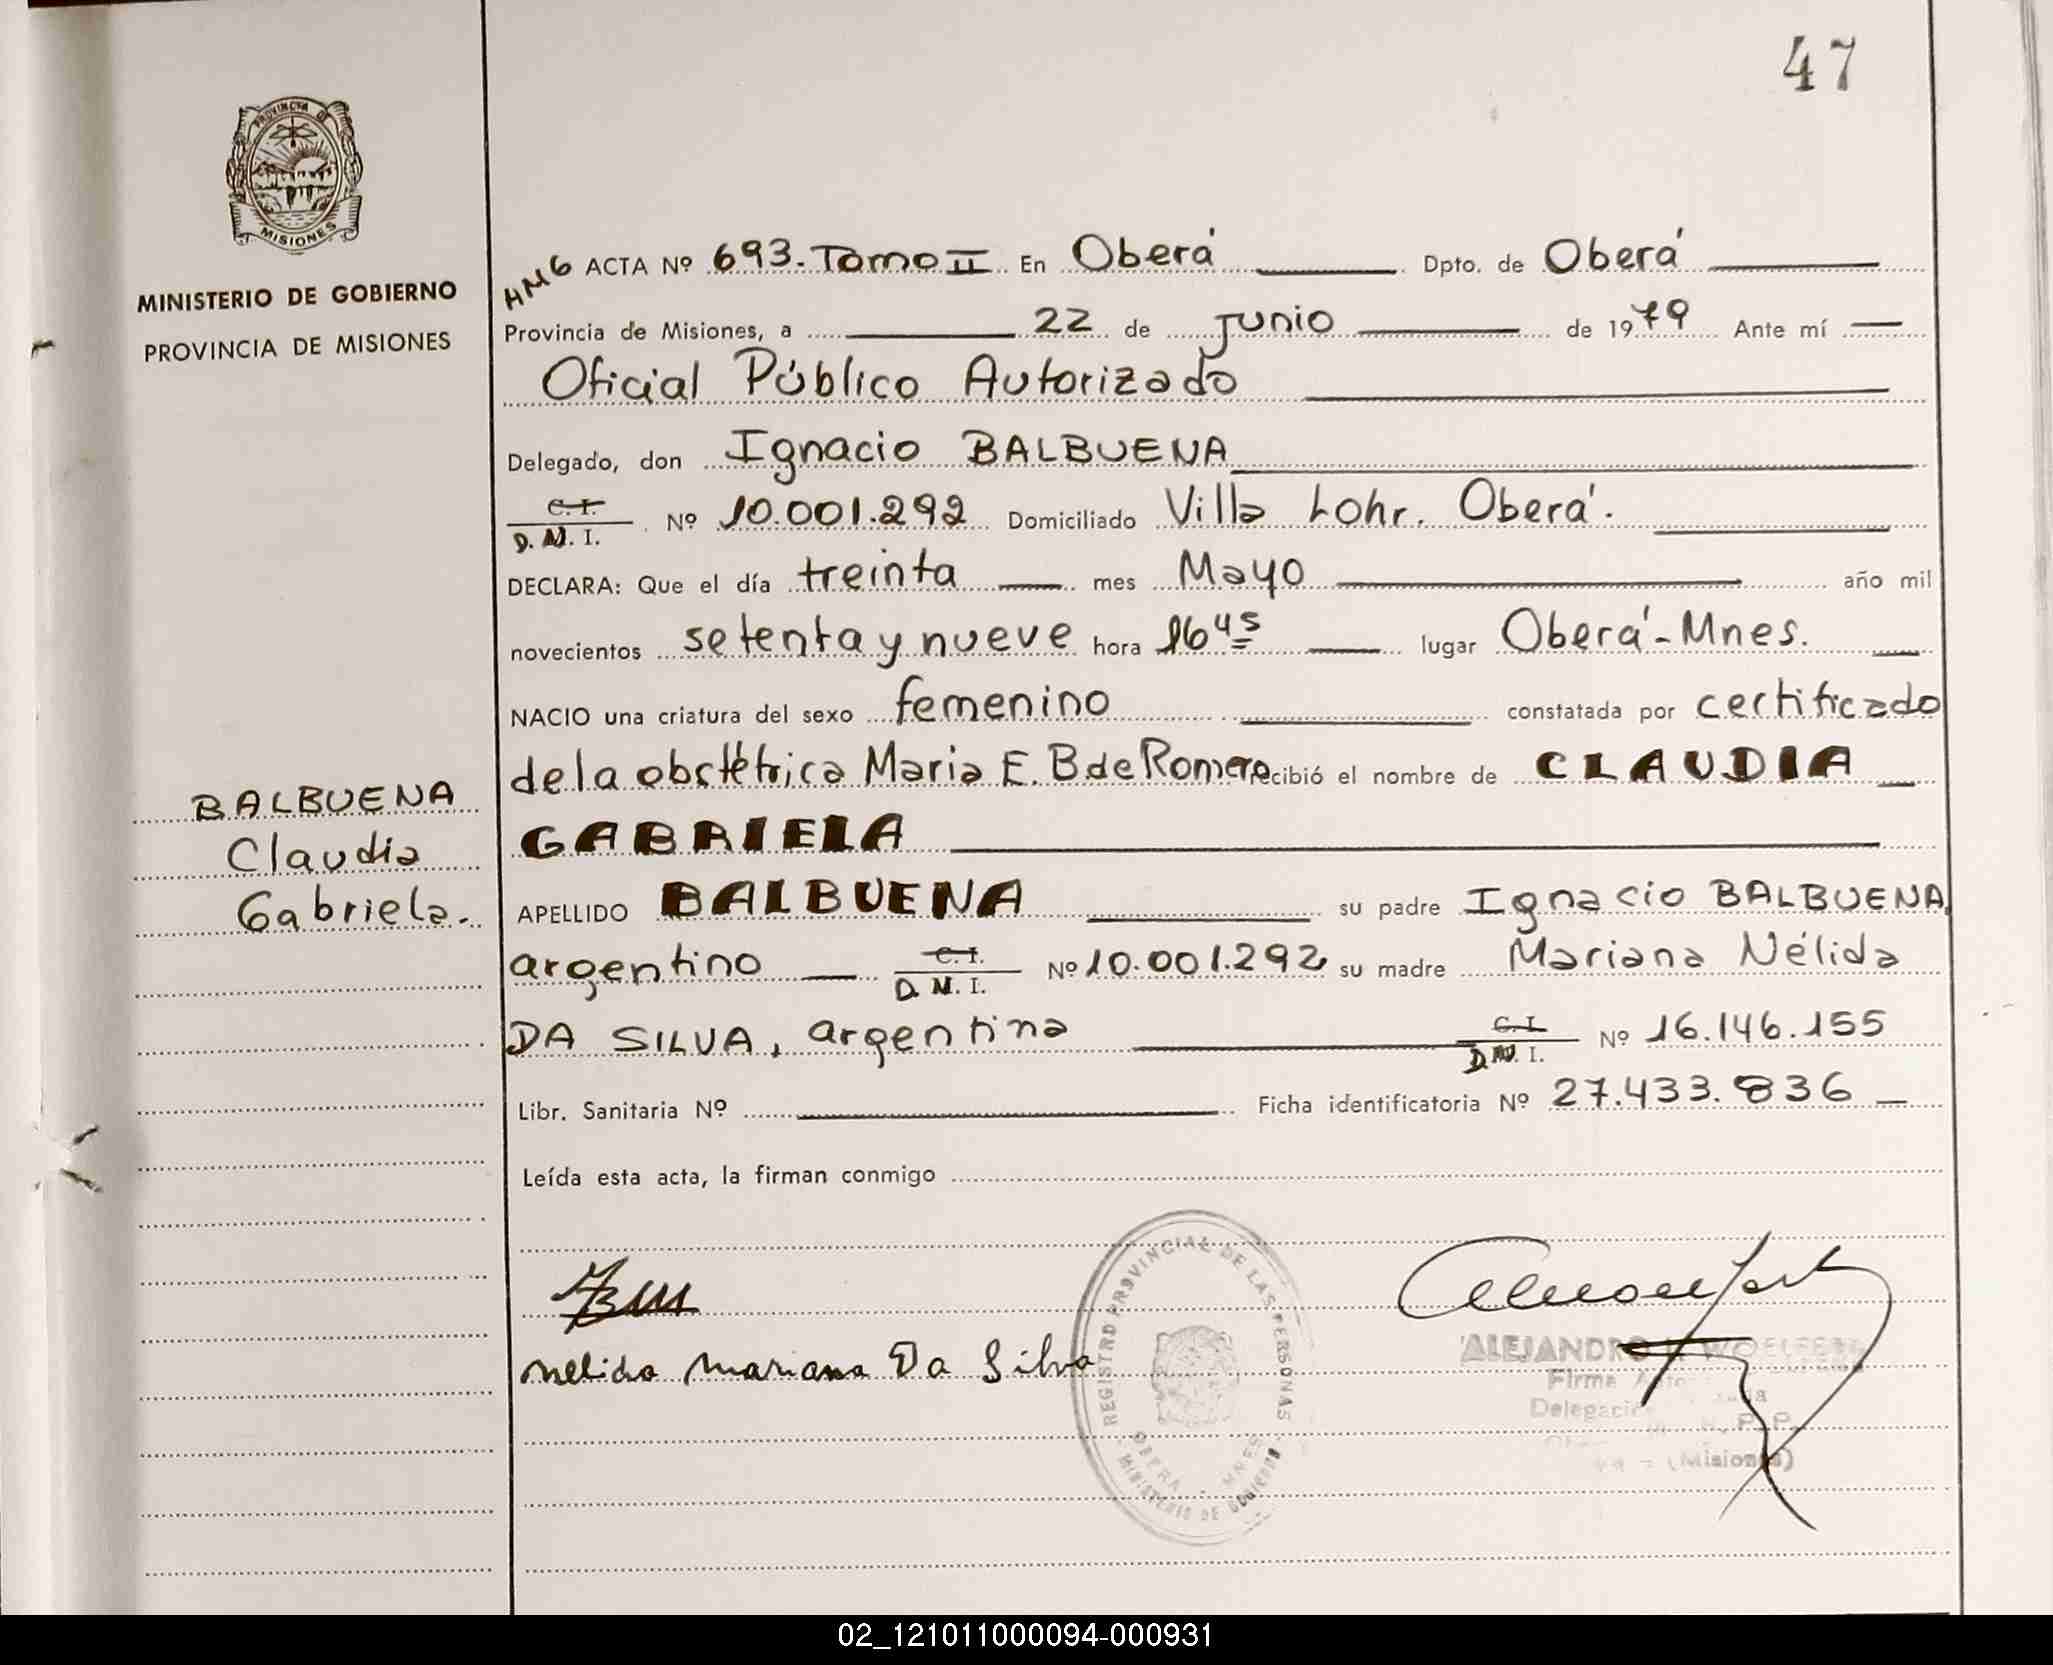 47
PROVINCIA DE
MISIONES
MINISTERIO DE GOBIERNO
PROVINCIA DE MISIONES
HMG ACTA Nº 693. Tomo II En Oberá Dpto. de Oberá
Provincia de Misiones, a 22 de Junio de 1979 Ante mí
Oficial Público Autorizado
Delegado, don Ignacio BALBUENA
C. I.
D. N. I. Nº 10.001.292 Domiciliado Villa Lohr. Oberá.
DECLARA: Que el día treinta mes Mayo año mil
novecientos setenta y nueve hora 16 45 lugar Oberá-Mnes.
NACIO una criatura del sexo femenino constatada por certificado
de la obstétrica Maria E. B de Romero recibió el nombre de CLAUDIA
GABRIELA
BALBUENA
Claudia
Gabriela.
APELLIDO BALBUENA su padre Ignacio BALBUENA,
argentino C. I. D. N. I. Nº 10.001.292 su madre Mariana Nélida
DA SILVA, argentina C. I. D. N. I. Nº 16.146.155
Libr. Sanitaria Nº Ficha identificatoria Nº 27.433.836
Leída esta acta, la firman conmigo
Nelida Mariana Da Silva
REGISTRO PROVINCIAL DE LAS PERSONAS
OBERA - MNES
MINISTERIO DE GOBIERNO
ALEJANDRO
Firma
Delegación
(Misiones)
02_121011000094-000931